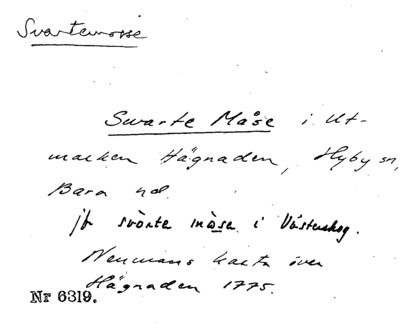 Svartemosse
Swarte Måse i Ut-
marken Hägnaden, Hyby sn,
Bara hd.
jfr svarte måse i Västerskog.
Neumans karta över
Hägnaden 1775.
Nr 6319.